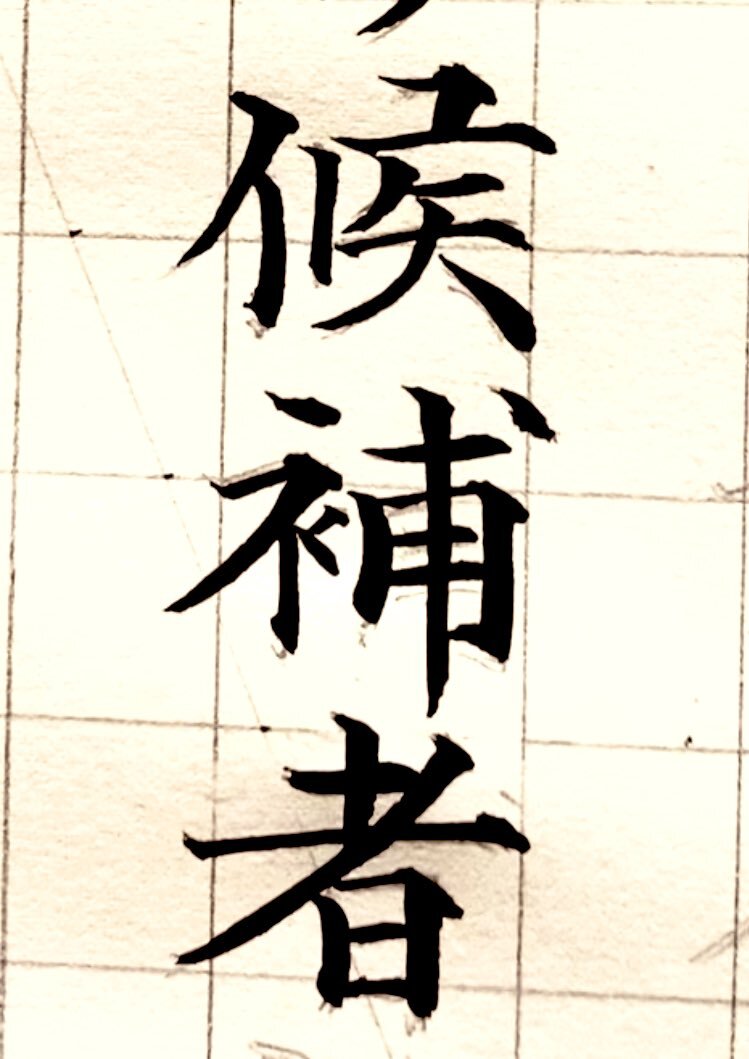 候補者